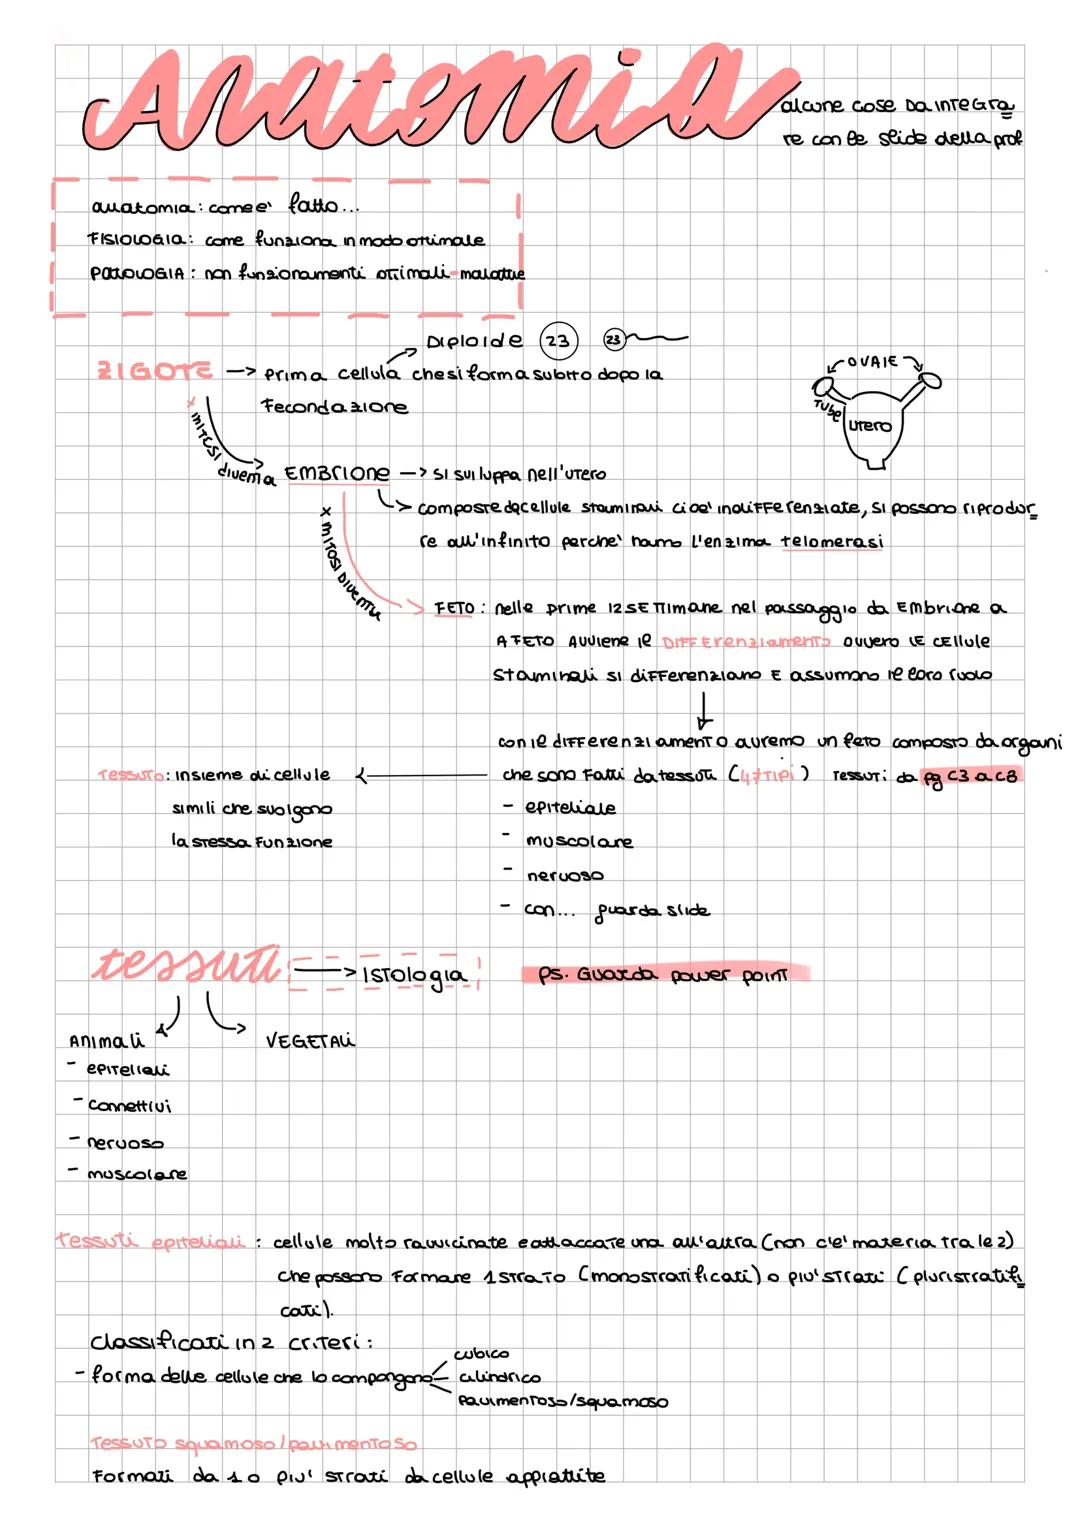 Anatomia
alcune cose da integra
re con le slide della prof
anatomia: come e' fatto...
FISIOLOGIA: come funziona in modo ottimale
PATOLOGIA: non funzionamenti ottimali-malattie
Diploide 23 23
ZIGOTE -> Prima cellula che si forma subito dopo la
Fecondazione
OVAIE
Tube
Utero
x mitosi diventa
EMBRIONE -> si sviluppa nell'utero
-> composte da cellule staminali cioe' indifferenziate, si possono riprodur
re all'infinito perche' hanno l'enzima telomerasi
x mitosi diventa
-> FETO: nelle prime 12 settimane nel passaggio da Embrione a
A FETO avviene il DIFFerenziamento ovvero le cellule
staminali si differenziano e assumono il loro ruolo
con il differenziamento avremo un feto composto da organi
Tessuto: insieme di cellule <- che sono fatti da tessuti (4 ≠ tipi) Tessuti: da pg C3 a C8
simili che svolgono - epiteliale
la stessa funzione - muscolare
- nervoso
- con... guarda slide
tessuti -> Istologia PS. Guarda power point
Animali VEGETALI
- epiteliali
- connettivi
- nervoso
- muscolare
Tessuti epiteliali: cellule molto ravvicinate e attaccate una all'altra (non c'e' materia tra le 2)
che possono formare 1 strato (monostratificati) o piu' strati (pluristratifi
cati).
Classificati in 2 criteri:
cubico
- forma delle cellule che lo compongono cilindrico
pavimentoso/squamoso
Tessuto squamoso/pavimentoso
Formati da 1 o piu' strati da cellule appiattite